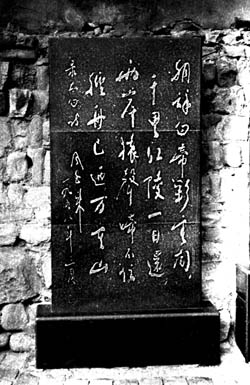 朝辞白帝彩雲间
千里江陵一日還
两岸猿聲啼不住
轻舟已过万重山
周恩来